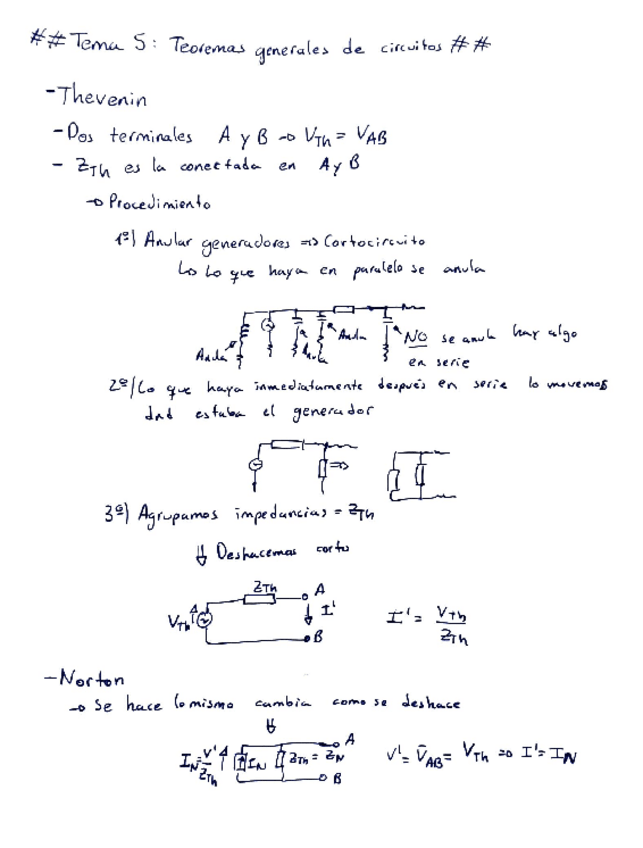 ##Tema 5: Teoremas generales de circuitos##
-Thevenin
-Dos terminales A y B → V_Th = V_AB
- Z_Th es la conectada en A y B
→ Procedimiento
1º) Anular generadores => Cortocircuito
↳ Lo que haya en paralelo se anula
Anula Anula Anula NO se anula hay algo
en serie
2º/ Lo que haya inmediatamente después en serie lo movemos
dnd estaba el generador
=>
3º) Agrupamos impedancias = Z_Th
⇓ Deshacemos corto
V_Th Z_Th A I' B I' = V_Th / Z_Th
-Norton
→ Se hace lo mismo cambia como se deshace
⇓
I_N = V' / Z_Th I_N Z_Th = Z_N A B V' = V̄_AB = V_Th => I' = I_N